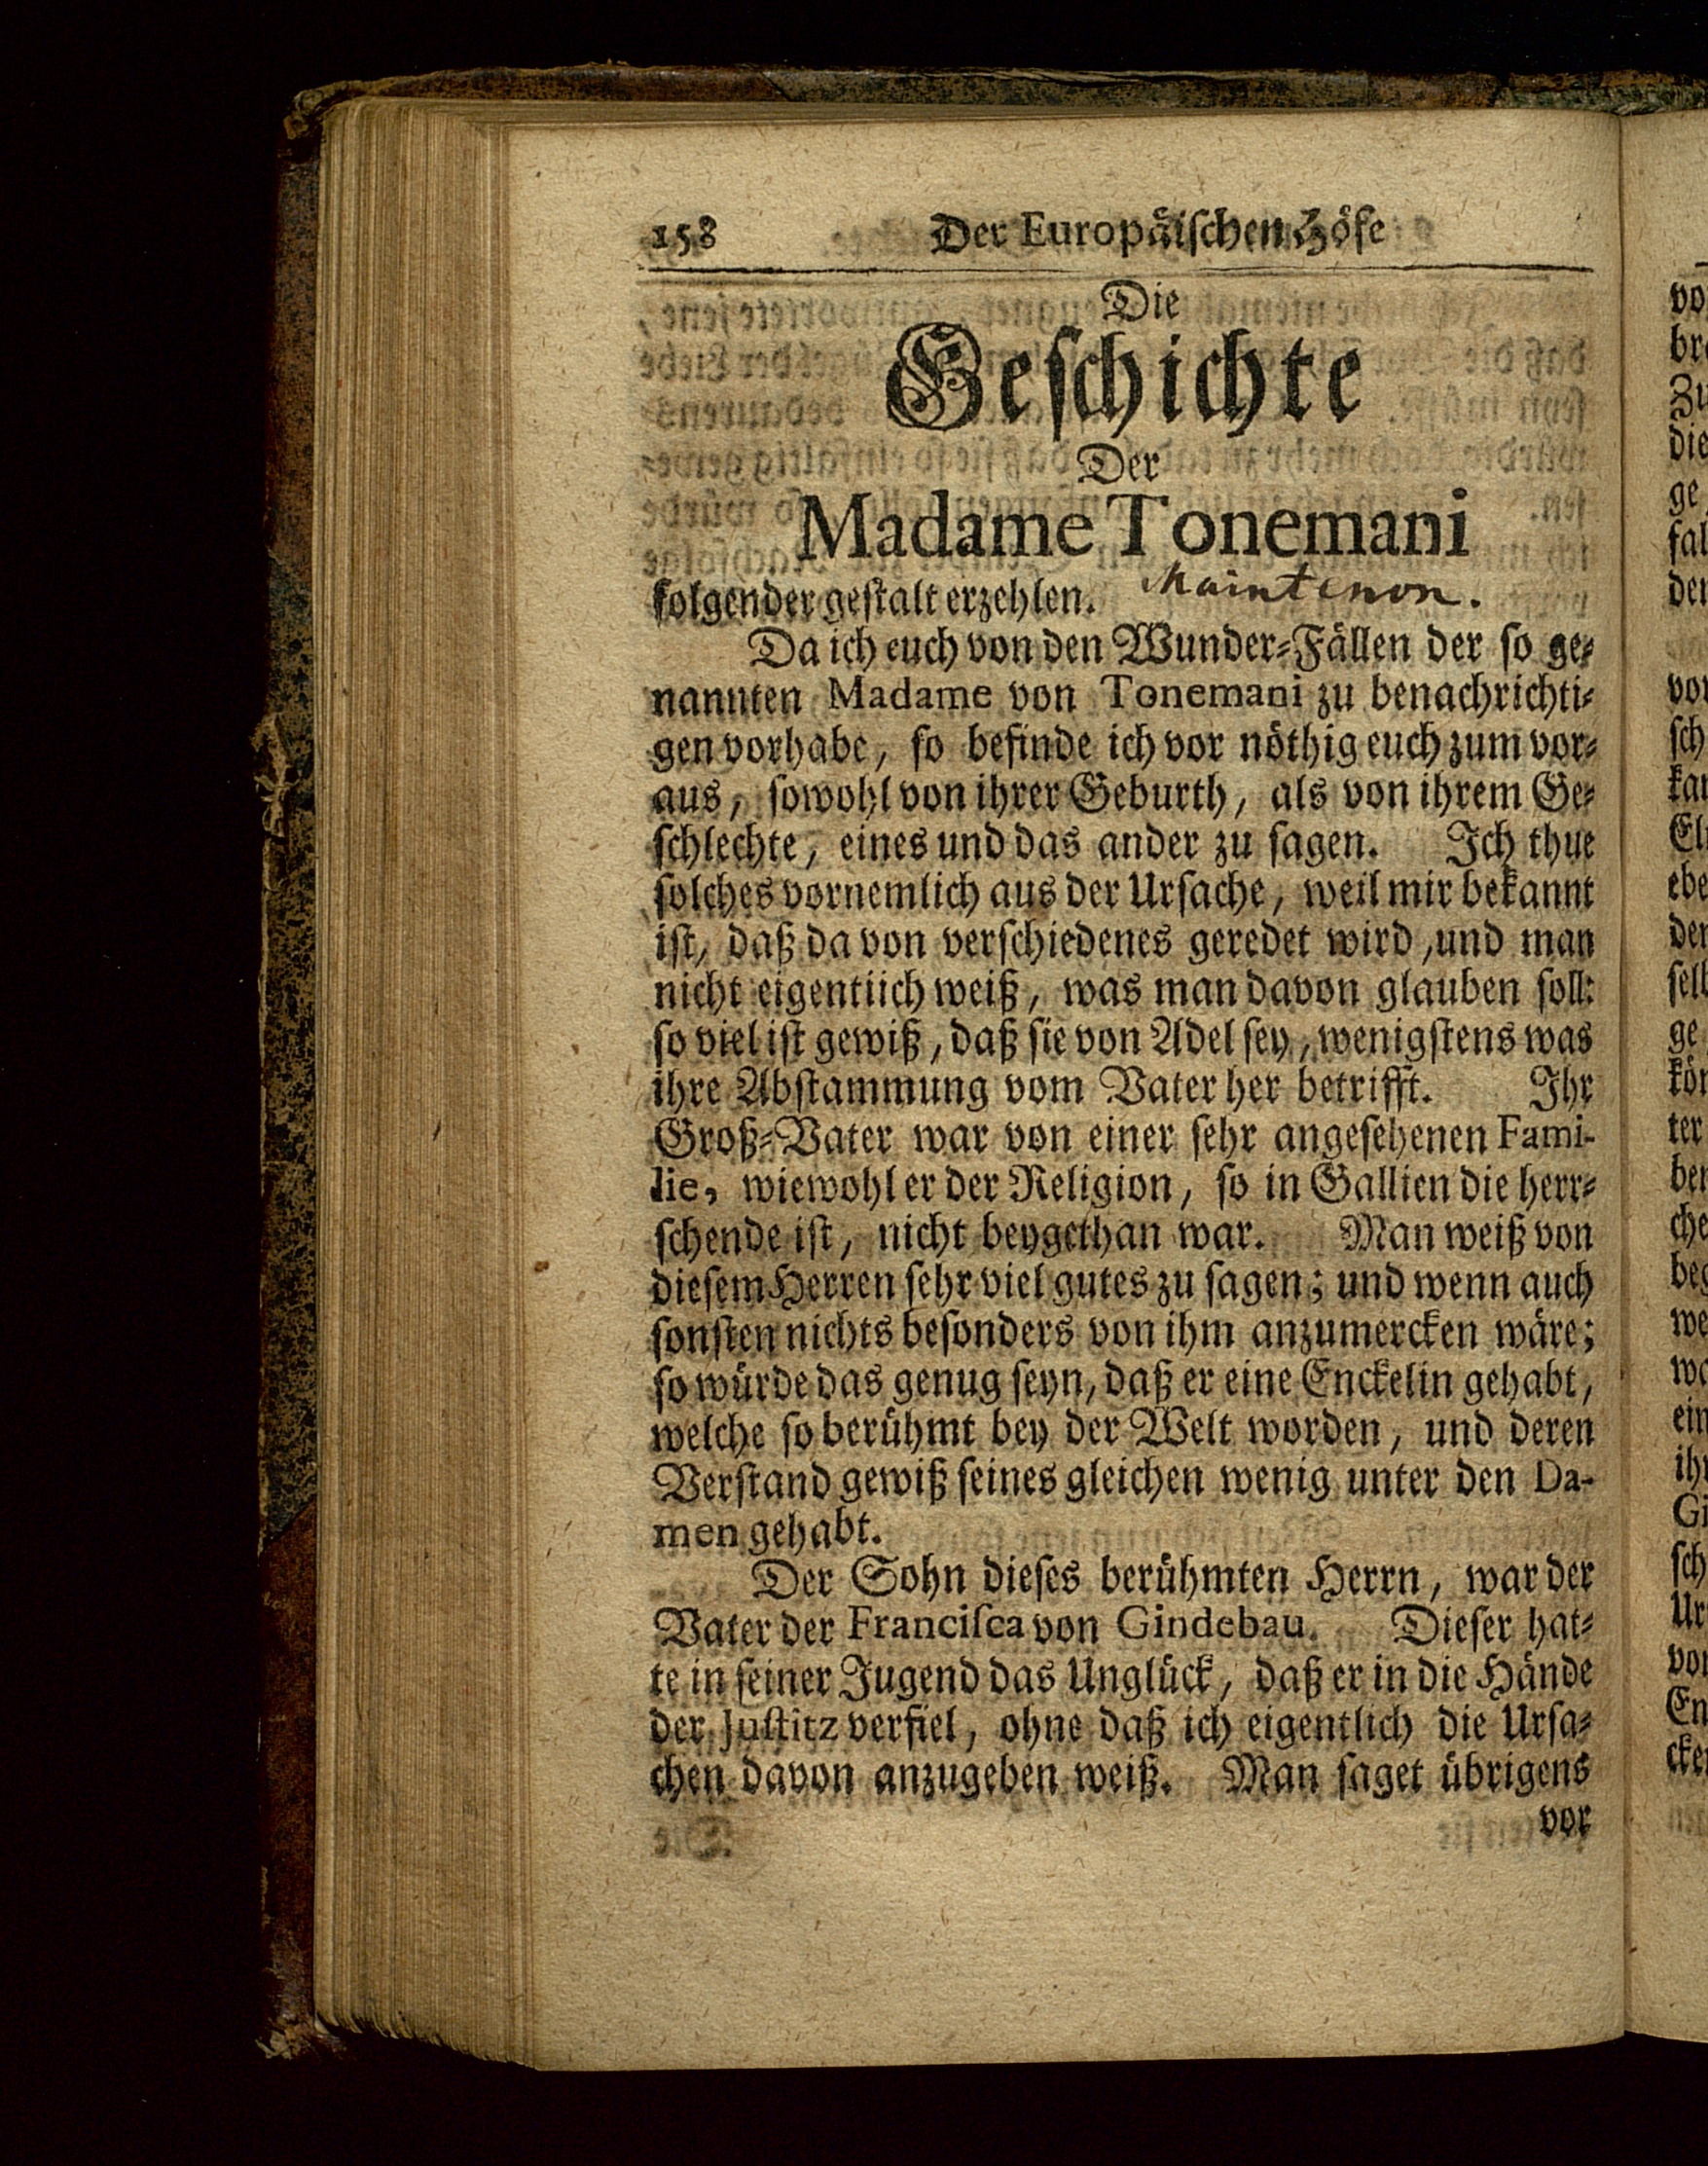 158 Der Europäischen Höfe
Die
Geschichte
Der
Madame Tonemani
folgender gestalt erzehlen. Maintenon.
Da ich euch von den Wunder-Fällen der so ge-
nannten Madame von Tonemani zu benachrichti-
gen vorhabe, so befinde ich vor nöthig euch zum vor-
aus, sowohl von ihrer Geburth, als von ihrem Ge-
schlechte, eines und das ander zu sagen. Ich thue
solches vornemlich aus der Ursache, weil mir bekannt
ist, daß da von verschiedenes geredet wird, und man
nicht eigentiich weiß, was man davon glauben soll:
so viel ist gewiß, daß sie von Adel sey, wenigstens was
ihre Abstammung vom Vater her betrifft. Ihr
Groß-Vater war von einer sehr angesehenen Fami-
lie, wiewohl er der Religion, so in Gallien die herr-
schende ist, nicht beygethan war. Man weiß von
diesem Herren sehr viel gutes zu sagen; und wenn auch
sonsten nichts besonders von ihm anzumercken wäre;
so würde das genug seyn, daß er eine Enckelin gehabt,
welche so berühmt bey der Welt worden, und deren
Verstand gewiß seines gleichen wenig unter den Da-
men gehabt.
Der Sohn dieses berühmten Herrn, war der
Vater der Francisca von Gindebau. Dieser hat-
te in seiner Jugend das Unglück, daß er in die Hände
der Justitz verfiel, ohne daß ich eigentlich die Ursa-
chen davon anzugeben weiß. Man saget übrigens
vor